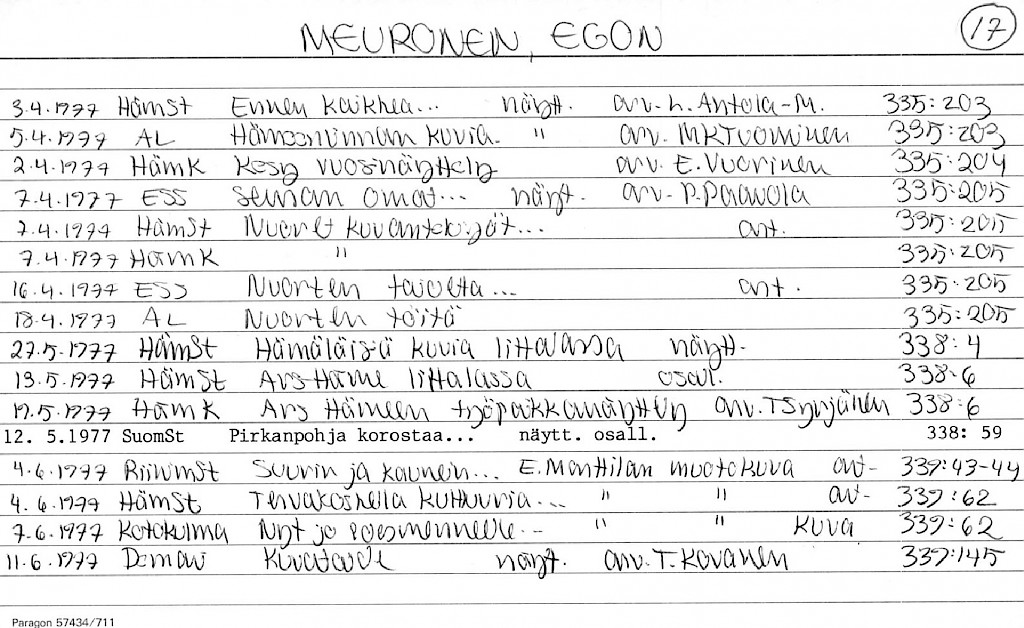 MEURONEN, EGON
17
3.4.1977 HämSt Ennen kaikkea... näytt. arv. L. Antola-M. 335:203
5.4.1977 AL Hämeenlinnan kuvia. " arv. MKTuominen 335:203
2.4.1977 HämK Kesy vuosinäyttely arv. E. Vuorinen 335:204
7.4.1977 ESS Seinän omat... näyt. arv. P. Paavola 335:205
7.4.1977 HämSt Nuoret kuvantekijät... art. 335:205
7.4.1977 HämK " 335:205
16.4.1977 ESS Nuorten art. 335:205
18.4.1977 AL Nuorten töitä 335:205
27.5.1977 HämSt Hämäläisiä kuvia Iittalassa näytt. 338:4
13.5.1977 HämSt Ars-Häme Iittalassa osal. 338:6
HämK Ars Hämeen työpaikkanäyttely arv. TSyrjänen 338:6
12. 5.1977 SuomSt Pirkanpohja korostaa... näytt. osall. 338: 59
4.6.1977 RiihimSt Suurin ja kaunein... E. Manttilan muotokuva art- 339:43-44
4.6.1977 HämSt Tervakoskella kulttuuria... " " ar- 339:62
7.6.1977 Kotokulma Nyt jo " " kuva 339:62
11.6.1977 Demari Kuvataide näyt. arv. T. Kovanen 339:145
Paragon 57434/711